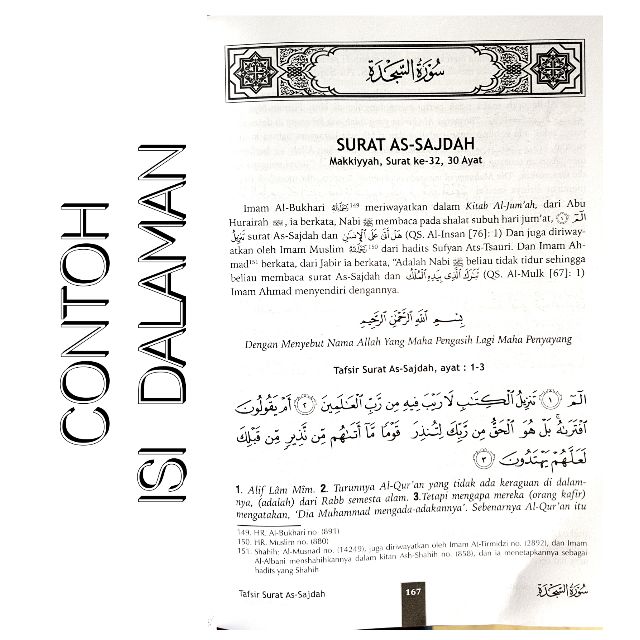 CONTOH
ISI DALAMAN
سُورَةُ السَّجْدَةِ
SURAT AS-SAJDAH
Makkiyyah, Surat ke-32, 30 Ayat
Imam Al-Bukhari 149 meriwayatkan dalam Kitab Al-Jum'ah, dari Abu
Hurairah, ia berkata, Nabi ﷺ membaca pada shalat subuh hari jum'at, الٓمٓ ۝١
تَنزِيلُ surat As-Sajdah dan هَلْ أَتَىٰ عَلَى ٱلْإِنسَٰنِ (QS. Al-Insan [76]: 1) Dan juga diriway-
atkan oleh Imam Muslim 150 dari hadits Sufyan Ats-Tsauri. Dan Imam Ah-
mad151 berkata, dari Jabir ia berkata, "Adalah Nabi ﷺ beliau tidak tidur sehingga
beliau membaca surat As-Sajdah dan تَبَٰرَكَ ٱلَّذِى بِيَدِهِ ٱلْمُلْكُ (QS. Al-Mulk [67]: 1)
Imam Ahmad menyendiri dengannya.
بِسْمِ ٱللَّهِ ٱلرَّحْمَٰنِ ٱلرَّحِيمِ
Dengan Menyebut Nama Allah Yang Maha Pengasih Lagi Maha Penyayang
Tafsir Surat As-Sajdah, ayat : 1-3
الٓمٓ ۝١ تَنزِيلُ ٱلْكِتَٰبِ لَا رَيْبَ فِيهِ مِن رَّبِّ ٱلْعَٰلَمِينَ ۝٢ أَمْ يَقُولُونَ
ٱفْتَرَىٰهُ ۚ بَلْ هُوَ ٱلْحَقُّ مِن رَّبِّكَ لِتُنذِرَ قَوْمًا مَّآ أَتَىٰهُم مِّن نَّذِيرٍ مِّن قَبْلِكَ
لَعَلَّهُمْ يَهْتَدُونَ ۝٣
1. Alif Lâm Mîm. 2. Turunnya Al-Qur'an yang tidak ada keraguan di dalam-
nya, (adalah) dari Rabb semesta alam. 3.Tetapi mengapa mereka (orang kafir)
mengatakan, 'Dia Muhammad mengada-adakannya'. Sebenarnya Al-Qur'an itu
149. HR. Al-Bukhari no. (891)
150. HR. Muslim no. (880)
151. Shahih: Al-Musnad no. (14249), juga diriwayatkan oleh Imam Al-Tirmidzi no. (2892), dan Imam
Al-Albani menshahihkannya dalam kitan Ash-Shahih no. (858), dan ia menetapkannya sebagai
hadits yang Shahih
Tafsir Surat As-Sajdah
167
سُورَةُ السَّجْدَةِ